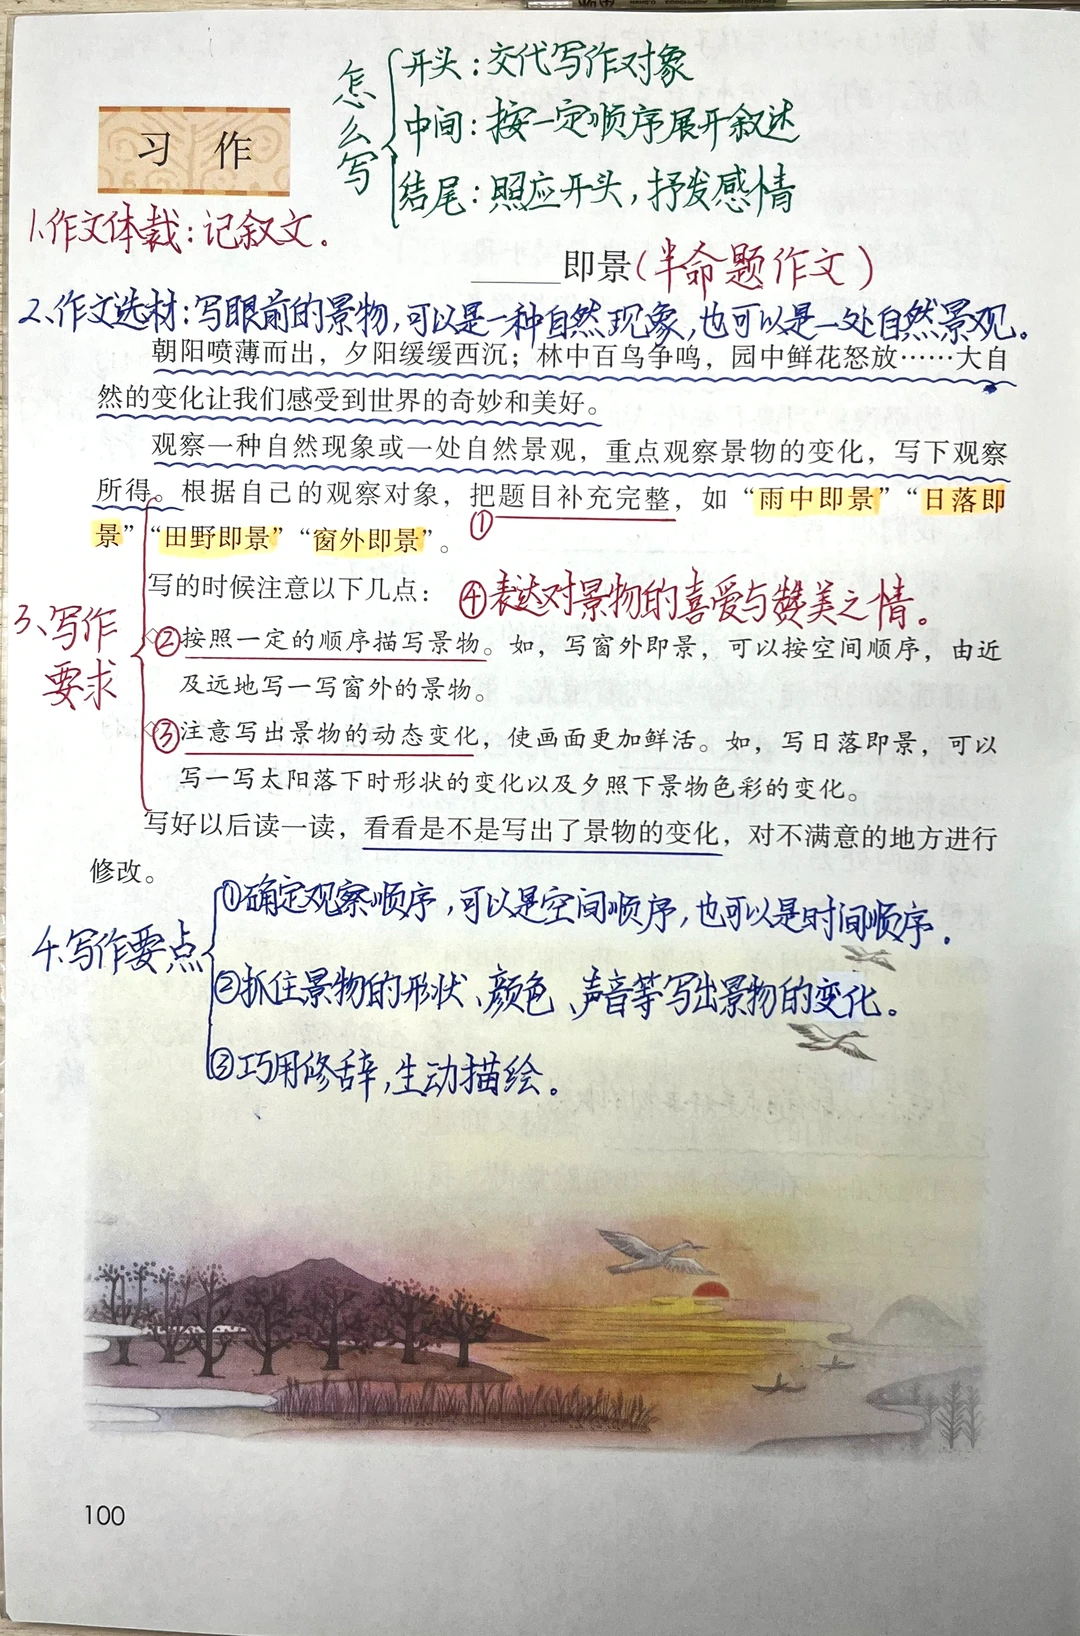 怎么写
开头：交代写作对象
中间：按一定顺序展开叙述
结尾：照应开头，抒发感情
习 作
1.作文体裁：记叙文。
______即景(半命题作文)
2.作文选材：写眼前的景物，可以是一种自然现象，也可以是一处自然景观。
朝阳喷薄而出，夕阳缓缓西沉；林中百鸟争鸣，园中鲜花怒放……大自
然的变化让我们感受到世界的奇妙和美好。
观察一种自然现象或一处自然景观，重点观察景物的变化，写下观察
所得。根据自己的观察对象，把题目补充完整，如“雨中即景”“日落即
①
景”“田野即景”“窗外即景”。
写的时候注意以下几点：
④表达对景物的喜爱与赞美之情。
3、写作要求
②按照一定的顺序描写景物。如，写窗外即景，可以按空间顺序，由近
及远地写一写窗外的景物。
③注意写出景物的动态变化，使画面更加鲜活。如，写日落即景，可以
写一写太阳落下时形状的变化以及夕照下景物色彩的变化。
写好以后读一读，看看是不是写出了景物的变化，对不满意的地方进行
修改。
4.写作要点
①确定观察顺序，可以是空间顺序，也可以是时间顺序.
②抓住景物的形状、颜色、声音等写出景物的变化。
③巧用修辞，生动描绘。
100